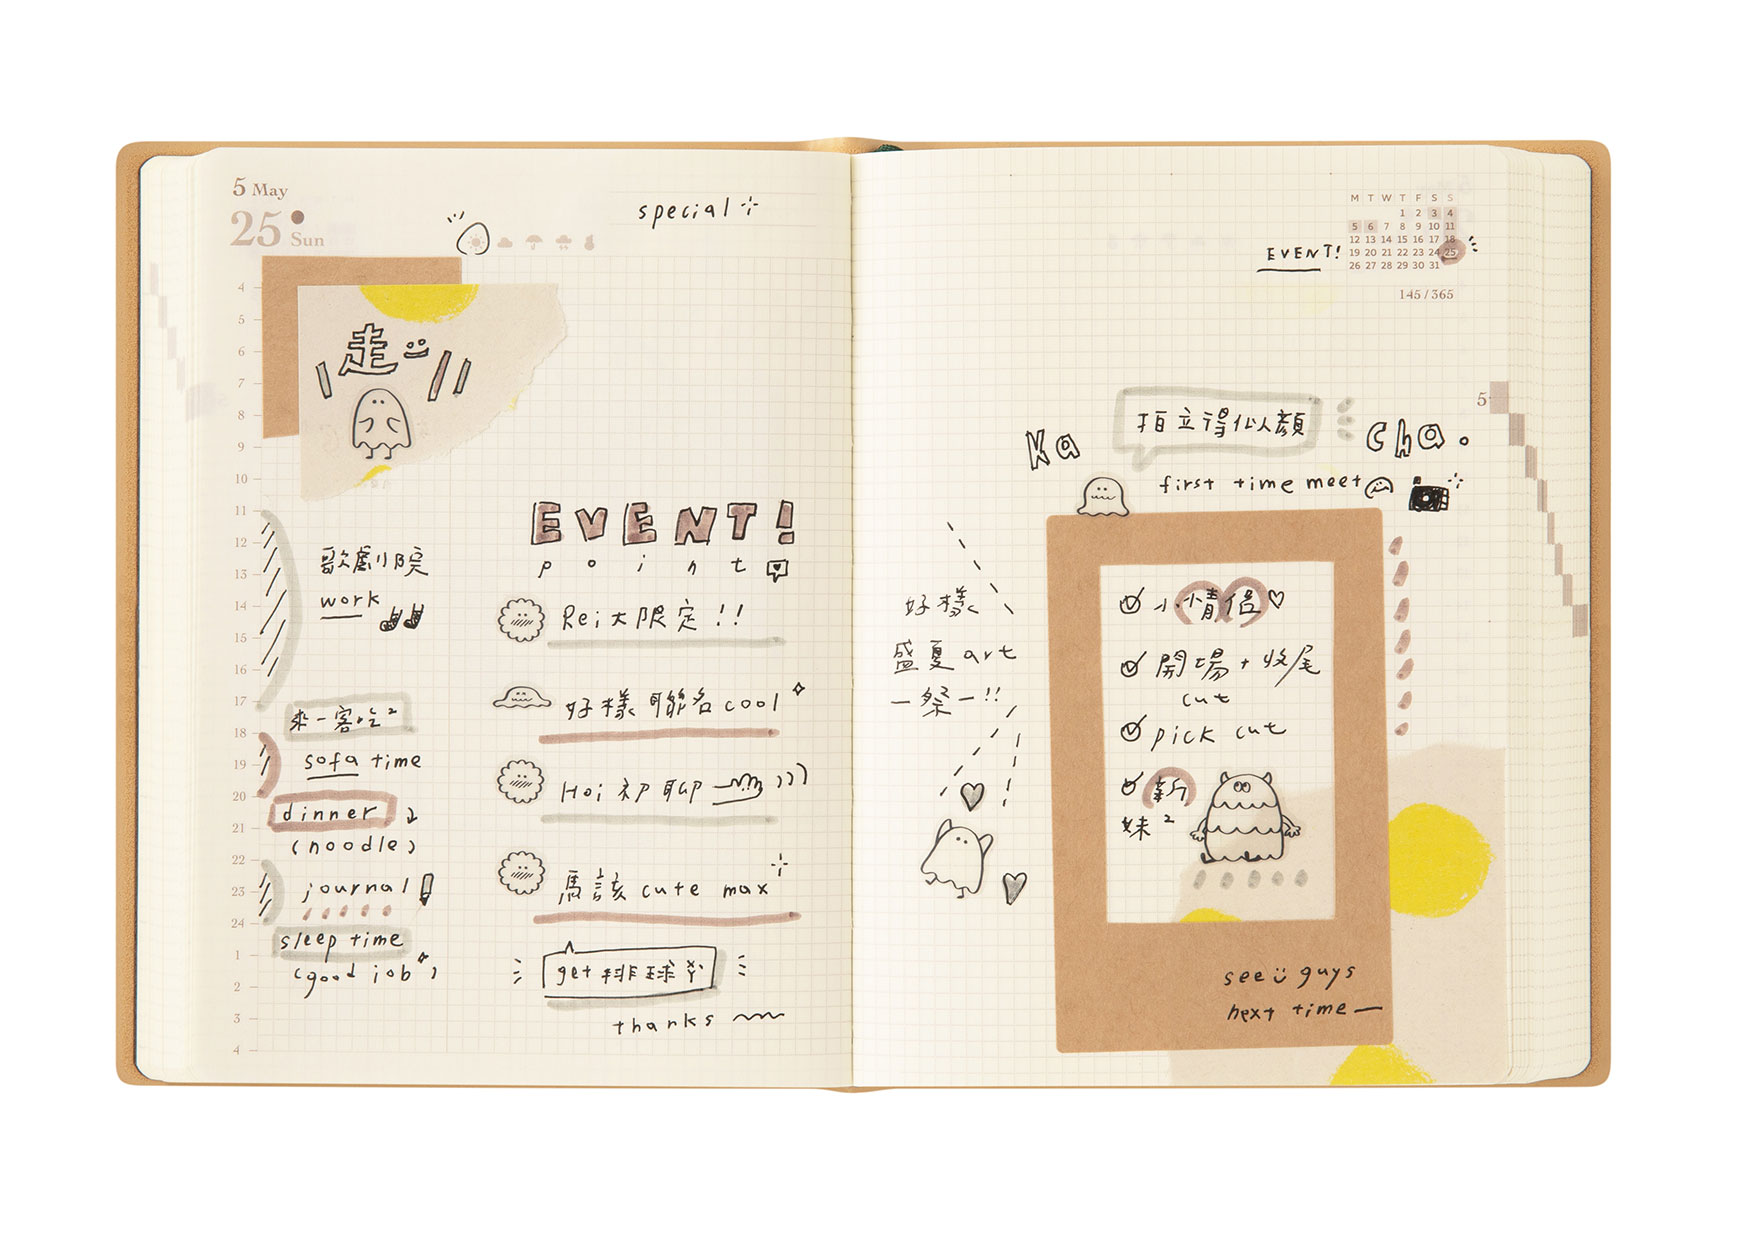 5 May
25 Sun
special
4
5
6
7
8
9
10
11
12
13
14
15
16
17
18
19
20
21
22
23
24
1
2
3
4
走
歌劇院
work
來一客吃²
sofa time
dinner
(noodle)
journal
sleep time
(good job)
EVENT!
point
Rei大限定!!
好樣聯名cool
Hoi初聊
馬該cute max
get排球
thanks
M T W T F S S
1 2 3 4
5 6 7 8 9 10 11
12 13 14 15 16 17 18
19 20 21 22 23 24 25
26 27 28 29 30 31
EVENT!
145/365
5
拍立得似顏
Ka Cha.
first time meet
好樣
盛夏art
一祭一!!
小情侶♡
開場+收尾
cut
pick cut
新
妹²
see guys
next time